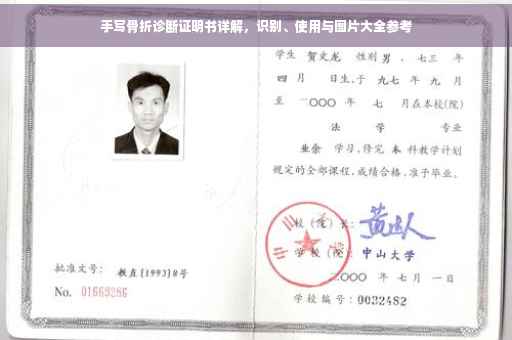 手写骨折诊断证明书详解，识别、使用与图片大全参考
学生 贺文龙 性别 男 、七三 年
四 月 日生,于 九七 年 九 月
至 二〇〇〇 年 七 月在本校(院)
法 学 专业
业余 学习,修完 本 科教学计划
规定的全部课程,成绩合格,准予毕业。
校(院)长:
学校(院): 中山大学
二〇〇〇 年 七 月 一 日
学校编号: 0032482
批准文号: 教直[1993]8号
No. 01663286